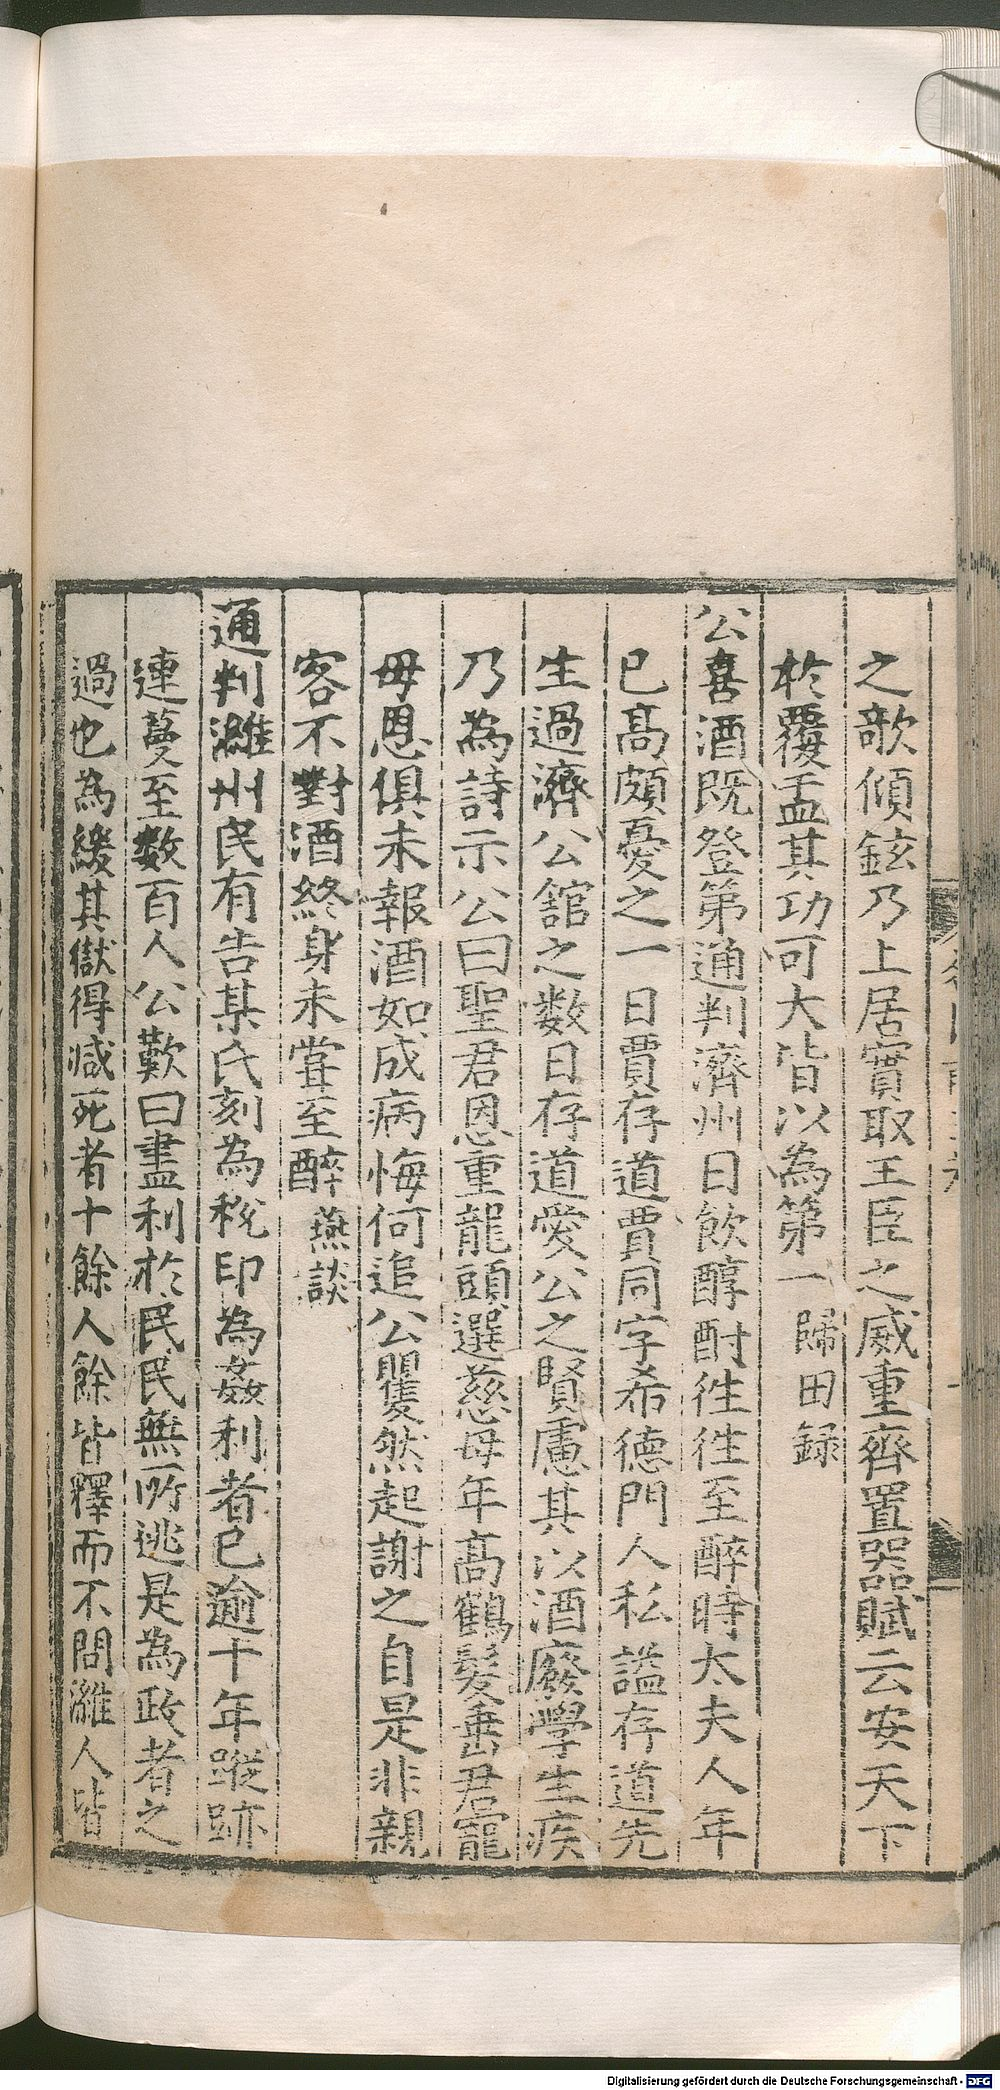 之欹傾鉉乃上居實取王臣之威重齊置器賦云安天下
於覆盂其功可大皆以為第一歸田録
公喜酒既登第通判濟州日飲醇酎徃徃至醉時太夫人年
已髙頗憂之一日賈存道賈同字希德門人私謚存道先
生過濟公舘之数日存道愛公之賢慮其以酒廢學生疾
乃為詩示公曰聖君恩重龍頭選慈母年髙鶴髮垂君寵
母恩俱未報酒如成病悔何追公矍然起謝之自是非親
客不對酒終身未甞至醉燕談
通判濰州民有告某氏刻為稅印為姦利者已逾十年蹤跡
連蔓至数百人公歎曰盡利於民民無所逃是為政者之
過也為緩其獄得減死者十餘人餘皆釋而不問濰人皆
Digitalisierung gefördert durch die Deutsche Forschungsgemeinschaft - DFG